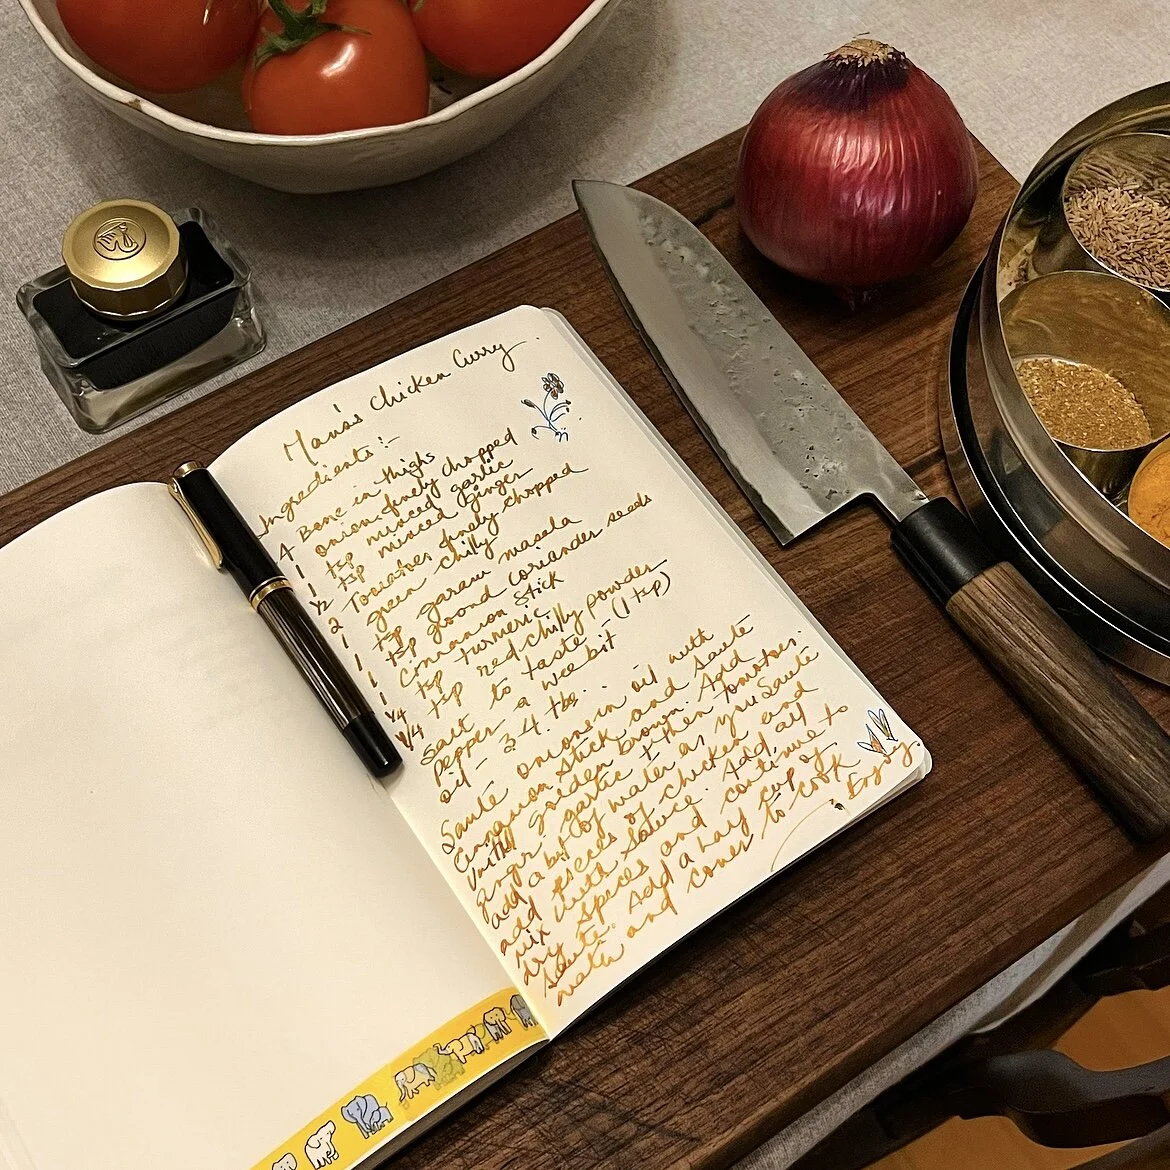 Mana's Chicken Curry
Ingredients:-
4 Bone in thighs
1 onion finely chopped
1 tsp minced garlic
1/2 tsp minced ginger
2 Tomatoes finely chopped
1 green chilly
1 tsp garam masala
1 tsp ground coriander seeds
1 cinnamon stick
1/4 tsp turmeric
1/4 tsp red chilly powder
Salt to taste - (1 tsp)
pepper - a wee bit
oil - 3-4 tbs.
Sauté onions in oil with
Cinnamon stick and sauté
until golden brown. Add
ginger garlic + then tomatoes.
add a bit of water as you sauté
add pieces of chicken and
mix with sauce. Add all
dry spices and continue to
sauté. Add a half cup of
water and cover to cook
Enjoy.